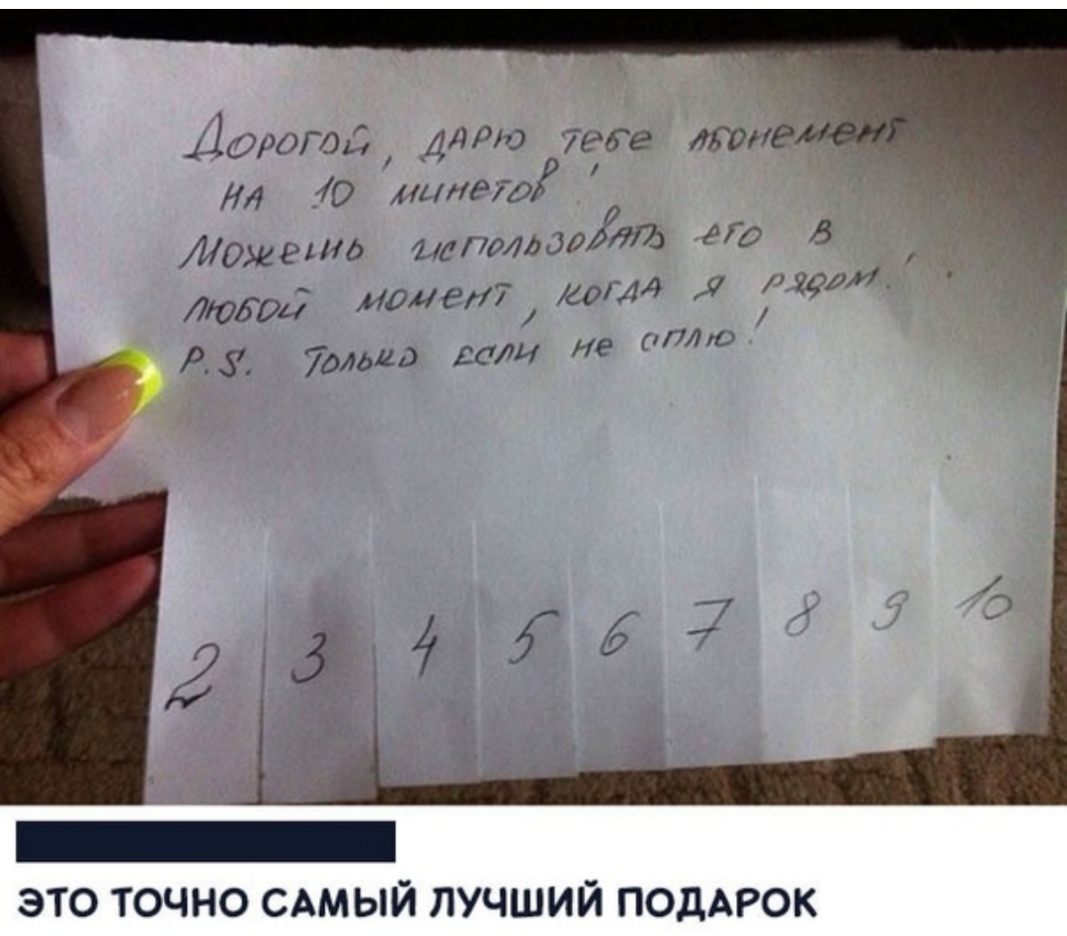 Дорогой, дарю тебе абонемент
на 10 минетов!
Можешь использовать его в
любой момент, когда я рядом!
P.S. Только если не сплю!
2 3 4 5 6 7 8 9 10
ЭТО ТОЧНО САМЫЙ ЛУЧШИЙ ПОДАРОК